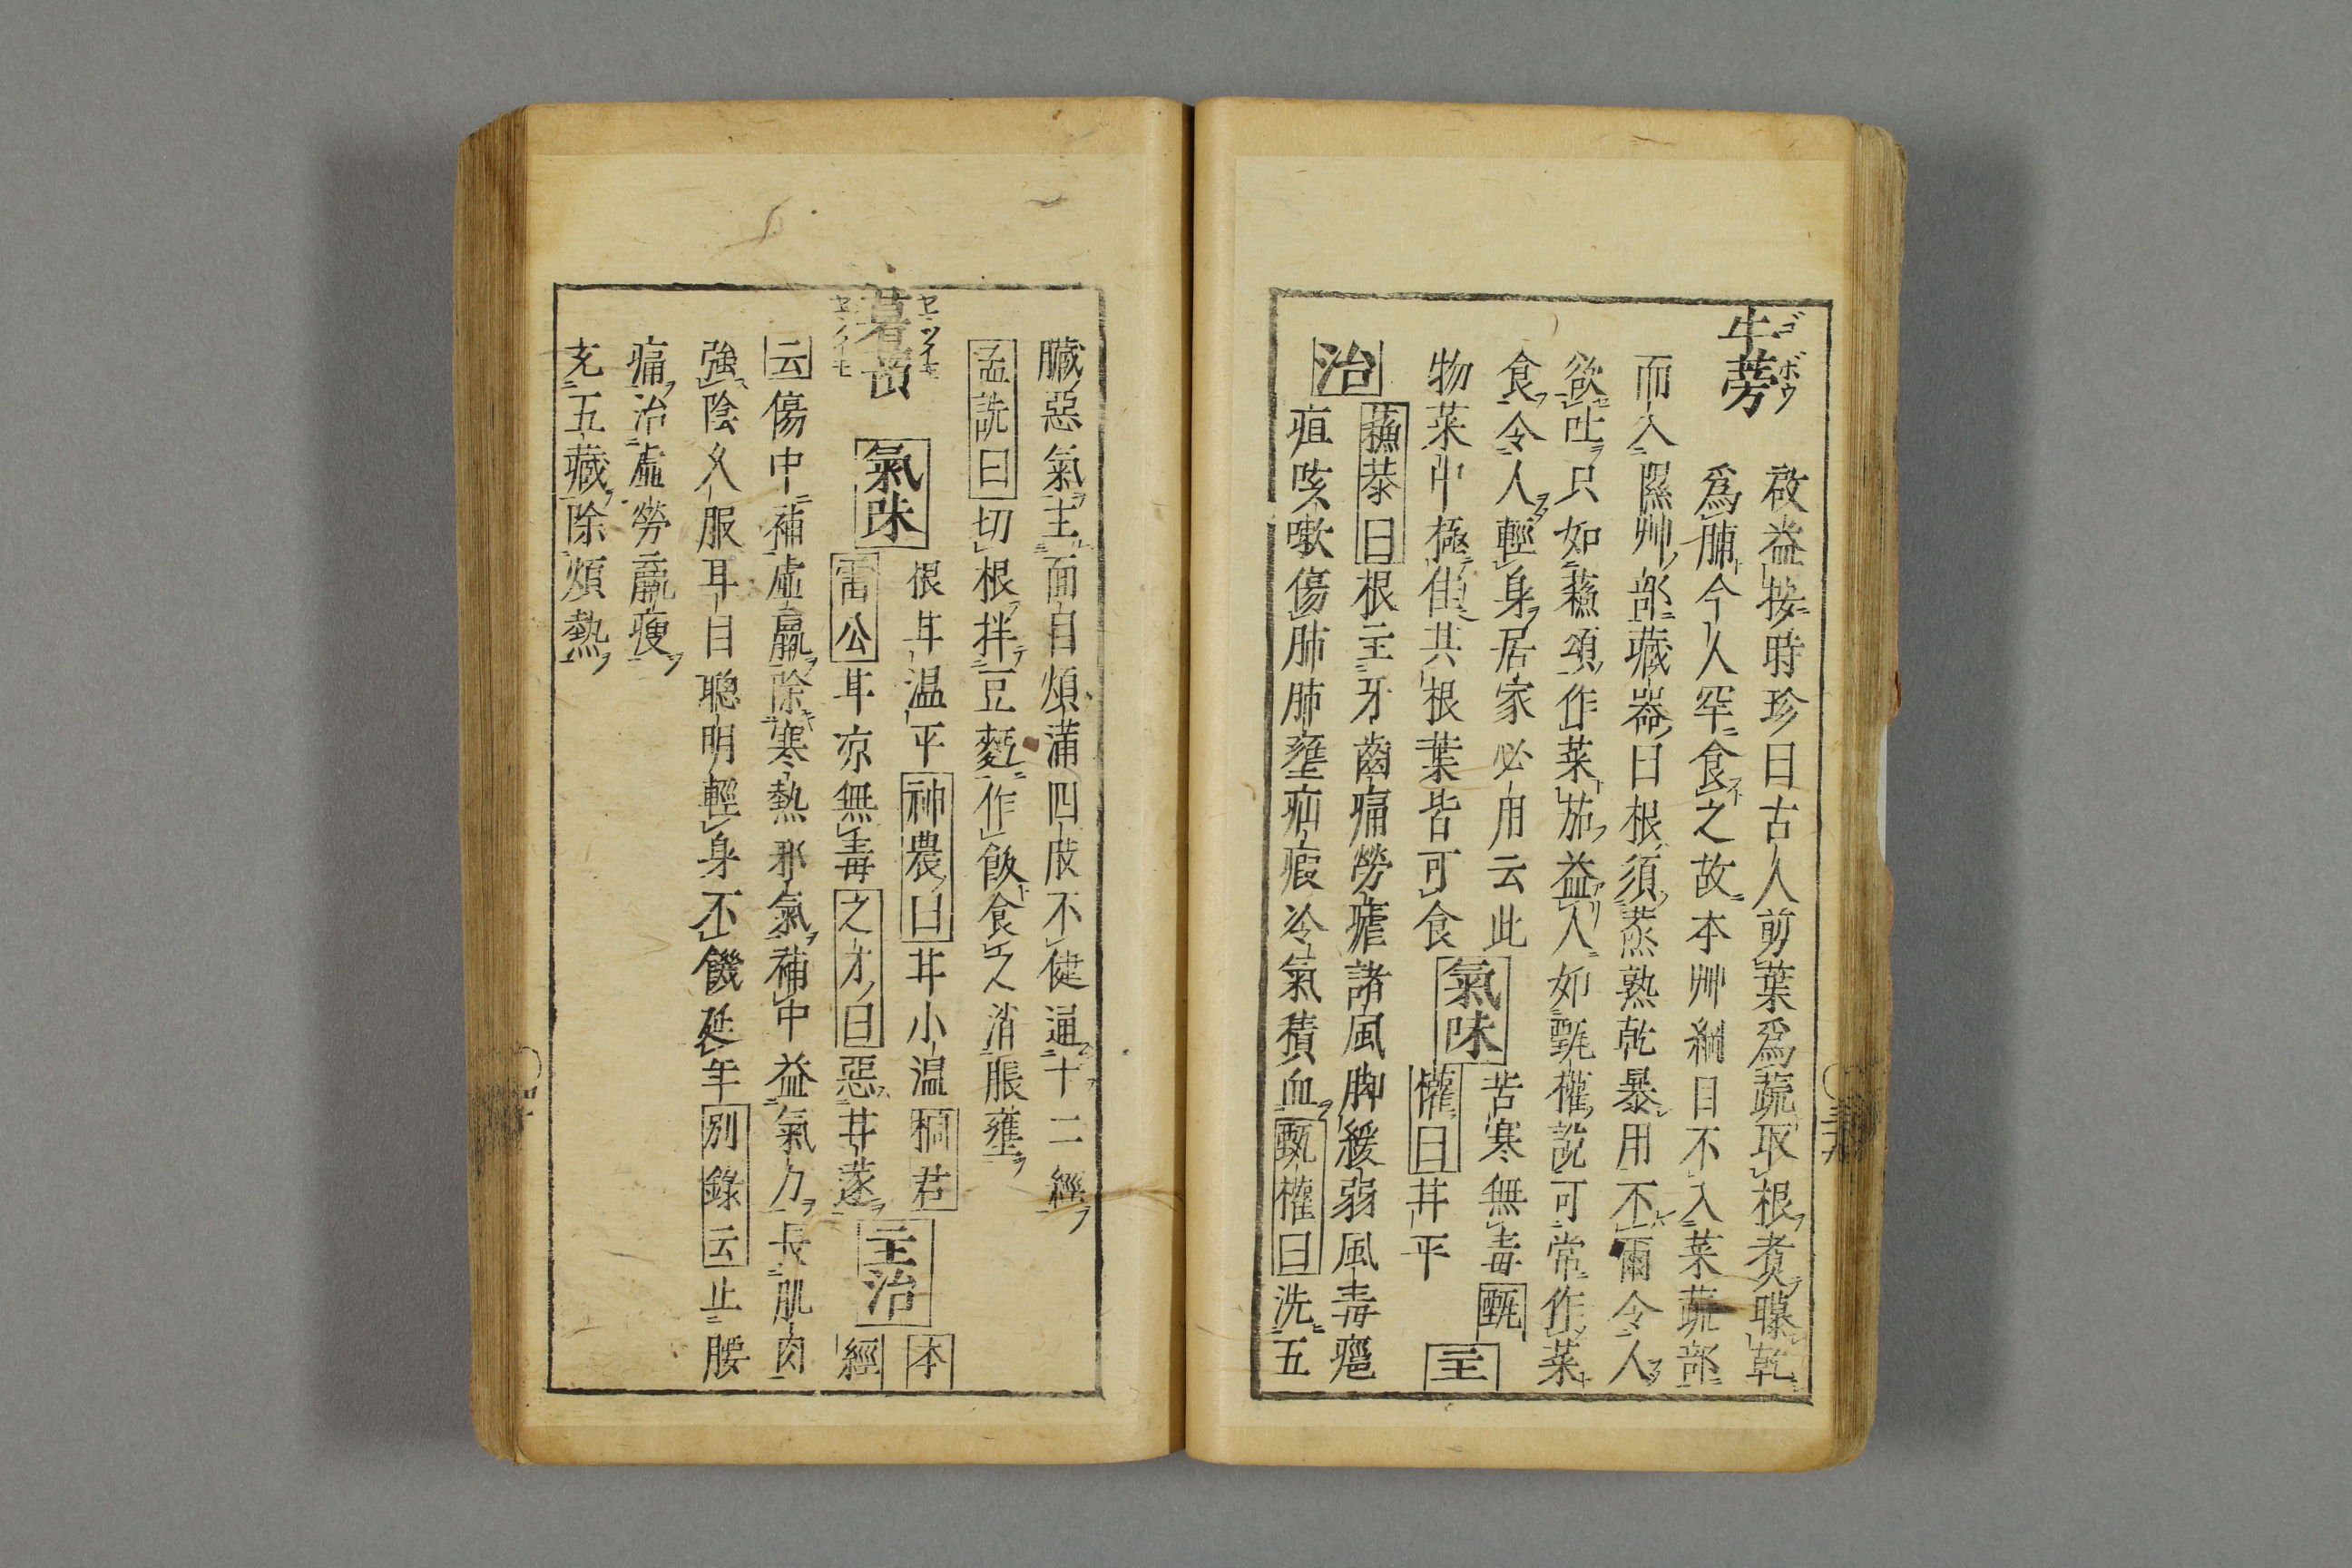 牛蒡
ゴボウ
啟益按時珍曰古人剪葉爲蔬取根煑曝乾
爲脯今人罕食之故本艸綱目不入菜蔬部
而入隰艸部藏器曰根須蒸熟乾暴用不爾令人
欲吐只如蘓頌作菜茄益人如甄權說可常作菜
食令人輕身居家必用云此
物菜中極佳其根葉皆可食
氣味
苦寒無毒甄
權曰甘平
主
治
蘓恭曰根主牙齒痛勞瘧諸風脚緩弱風毒癰
疽咳嗽傷肺肺壅疝瘕冷氣積血甄權曰洗五
臟惡氣主面目煩滿四肢不健通十二經
孟詵曰切根拌豆麪作飯食之消脹壅
薯蕷
氣味
根甘温平神農曰甘小温桐君
雷公甘凉無毒之才曰惡甘遂
主治
本
經
云傷中補虛羸除寒熱邪氣補中益氣力長肌肉
強陰久服耳目聰明輕身不饑延年別錄云止腰
痛治虛勞羸瘦
充五藏除煩熱